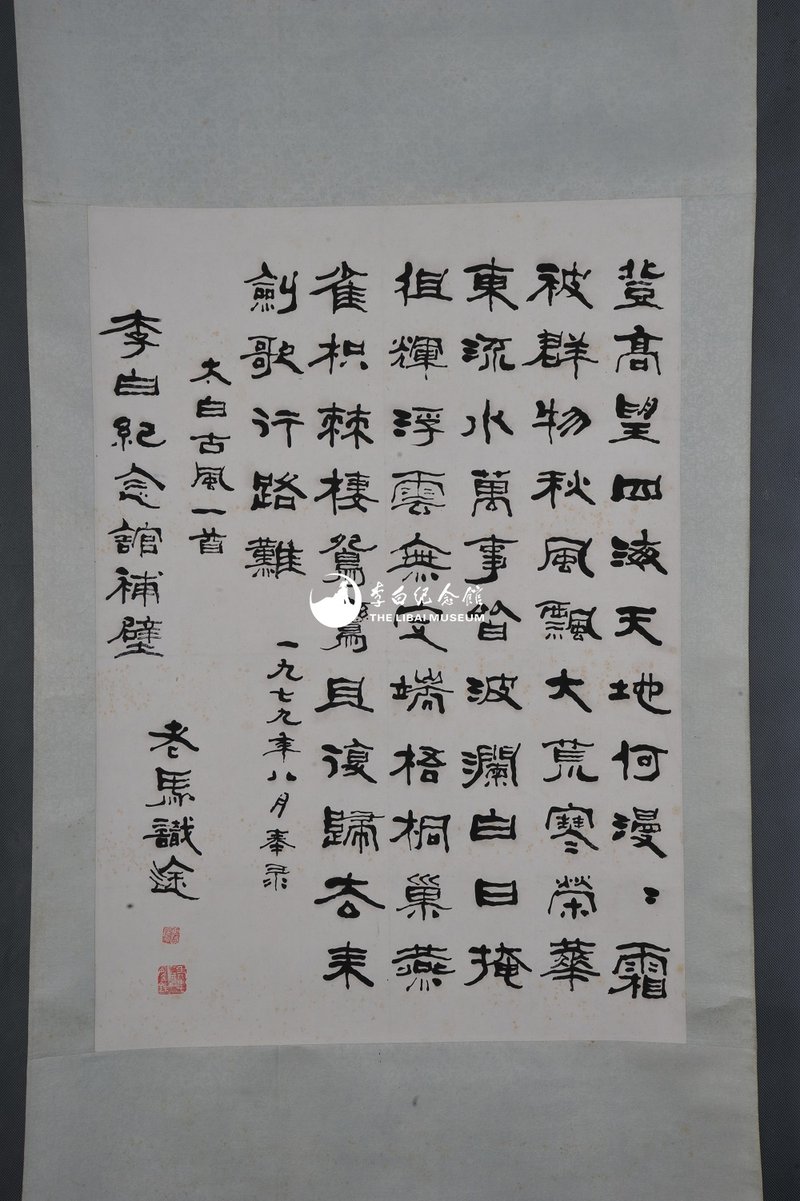 登高望四海天地何漫〻霜
被群物秋風飄大荒寒榮華
東流水萬事皆波瀾白日掩
徂輝浮雲無定端梧桐巢燕
雀枳棘棲鴛鸞且復歸去来
劍歌行路難
太白古風一首
一九七九年八月奉录
李白紀念館補壁
老馬識途
李白纪念馆
THE LIBAI MUSEUM